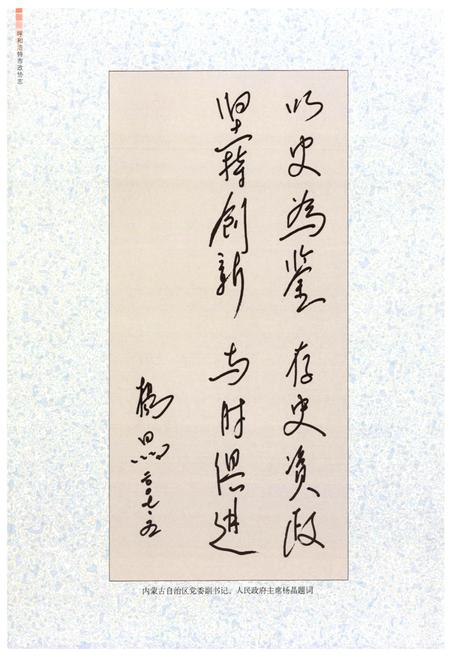 呼和浩特市政协志
以史为鉴 存史资政
坚持创新 与时俱进
杨晶
二〇〇七·五
内蒙古自治区党委副书记、人民政府主席杨晶题词